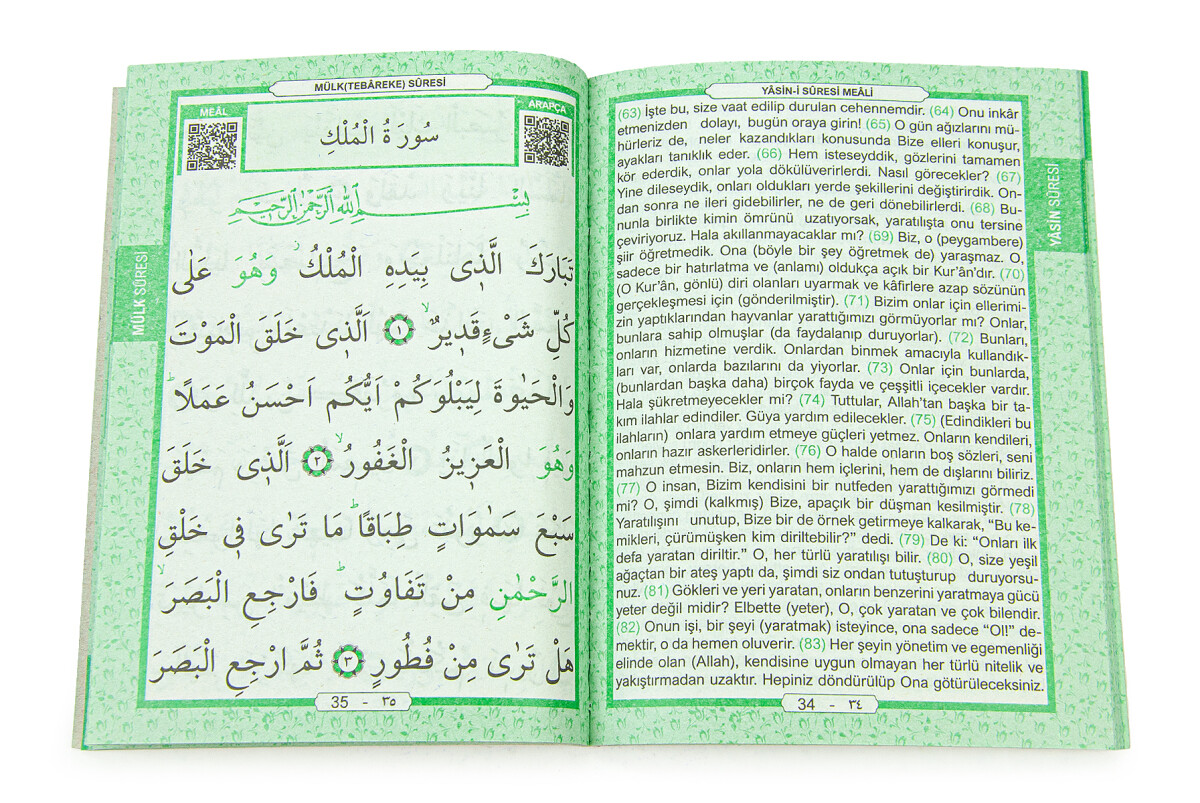 YÂSİN-İ SÛRESİ MEÂLİ
(63) İşte bu, size vaat edilip durulan cehennemdir. (64) Onu inkâr
etmenizden dolayı, bugün oraya girin! (65) O gün ağızlarını mü-
hürleriz de, neler kazandıkları konusunda Bize elleri konuşur,
ayakları tanıklık eder. (66) Hem isteseyddik, gözlerini tamamen
kör ederdik, onlar yola dökülüverirlerdi. Nasıl görecekler? (67)
Yine dileseydik, onları oldukları yerde şekillerini değiştirirdik. On-
dan sonra ne ileri gidebilirler, ne de geri dönebilirlerdi. (68) Bu-
nunla birlikte kimin ömrünü uzatıyorsak, yaratılışta onu tersine
çeviriyoruz. Hala akıllanmayacaklar mı? (69) Biz, o (peygambere)
şiir öğretmedik. Ona (böyle bir şey öğretmek de) yaraşmaz. O,
sadece bir hatırlatma ve (anlamı) oldukça açık bir Kur’ân’dır. (70)
(O Kur’ân, gönlü) diri olanları uyarmak ve kâfirlere azap sözünün
gerçekleşmesi için (gönderilmiştir). (71) Bizim onlar için ellerimi-
zin yaptıklarından hayvanlar yarattığımızı görmüyorlar mı? Onlar,
bunlara sahip olmuşlar (da faydalanıp duruyorlar). (72) Bunları,
onların hizmetine verdik. Onlardan binmek amacıyla kullandık-
ları var, onlarda bazılarını da yiyorlar. (73) Onlar için bunlarda,
(bunlardan başka daha) birçok fayda ve çeşşitli içecekler vardır.
Hala şükretmeyecekler mi? (74) Tuttular, Allah’tan başka bir ta-
kım ilahlar edindiler. Güya yardım edilecekler. (75) (Edindikleri bu
ilahların) onlara yardım etmeye güçleri yetmez. Onların kendileri,
onların hazır askerleridirler. (76) O halde onların boş sözleri, seni
mahzun etmesin. Biz, onların hem içlerini, hem de dışlarını biliriz.
(77) O insan, Bizim kendisini bir nutfeden yarattığımızı görmedi
mi? O, şimdi (kalkmış) Bize, apaçık bir düşman kesilmiştir. (78)
Yaratılışını unutup, Bize bir de örnek getirmeye kalkarak, “Bu ke-
mikleri, çürümüşken kim diriltebilir?” dedi. (79) De ki: “Onları ilk
defa yaratan diriltir.” O, her türlü yaratılışı bilir. (80) O, size yeşil
ağaçtan bir ateş yaptı da, şimdi siz ondan tutuşturup duruyorsu-
nuz. (81) Gökleri ve yeri yaratan, onların benzerini yaratmaya gücü
yeter değil midir? Elbette (yeter), O, çok yaratan ve çok bilendir.
(82) Onun işi, bir şeyi (yaratmak) isteyince, ona sadece “Ol!” de-
mektir, o da hemen oluverir. (83) Her şeyin yönetim ve egemenliği
elinde olan (Allah), kendisine uygun olmayan her türlü nitelik ve
yakıştırmadan uzaktır. Hepiniz döndürülüp Ona götürüleceksiniz.
YÂSİN SÛRESİ
34 - ٣٤
MÜLK(TEBÂREKE) SÛRESİ
MEÂL
ARAPÇA
سُورَةُ الْمُلْكِ
بِسْمِ اللّٰهِ الرَّحْمٰنِ الرَّحِيمِ
تَبَارَكَ الَّذ۪ى بِيَدِهِ الْمُلْكُۘ وَهُوَ عَلٰى
كُلِّ شَىْءٍ قَد۪يرٌۙ ١ اَلَّذ۪ى خَلَقَ الْمَوْتَ
وَالْحَيٰوةَ لِيَبْلُوَكُمْ اَيُّكُمْ اَحْسَنُ عَمَلًاۜ
وَهُوَ الْعَز۪يزُ الْغَفُورُۙ ٢ اَلَّذ۪ى خَلَقَ
سَبْعَ سَمٰوَاتٍ طِبَاقًاۜ مَا تَرٰى ف۪ى خَلْقِ
الرَّحْمٰنِ مِنْ تَفَاوُتٍۜ فَارْجِعِ الْبَصَرَۙ
هَلْ تَرٰى مِنْ فُطُورٍ ٣ ثُمَّ ارْجِعِ الْبَصَرَ
MÜLK SÛRESİ
35 - ٣٥